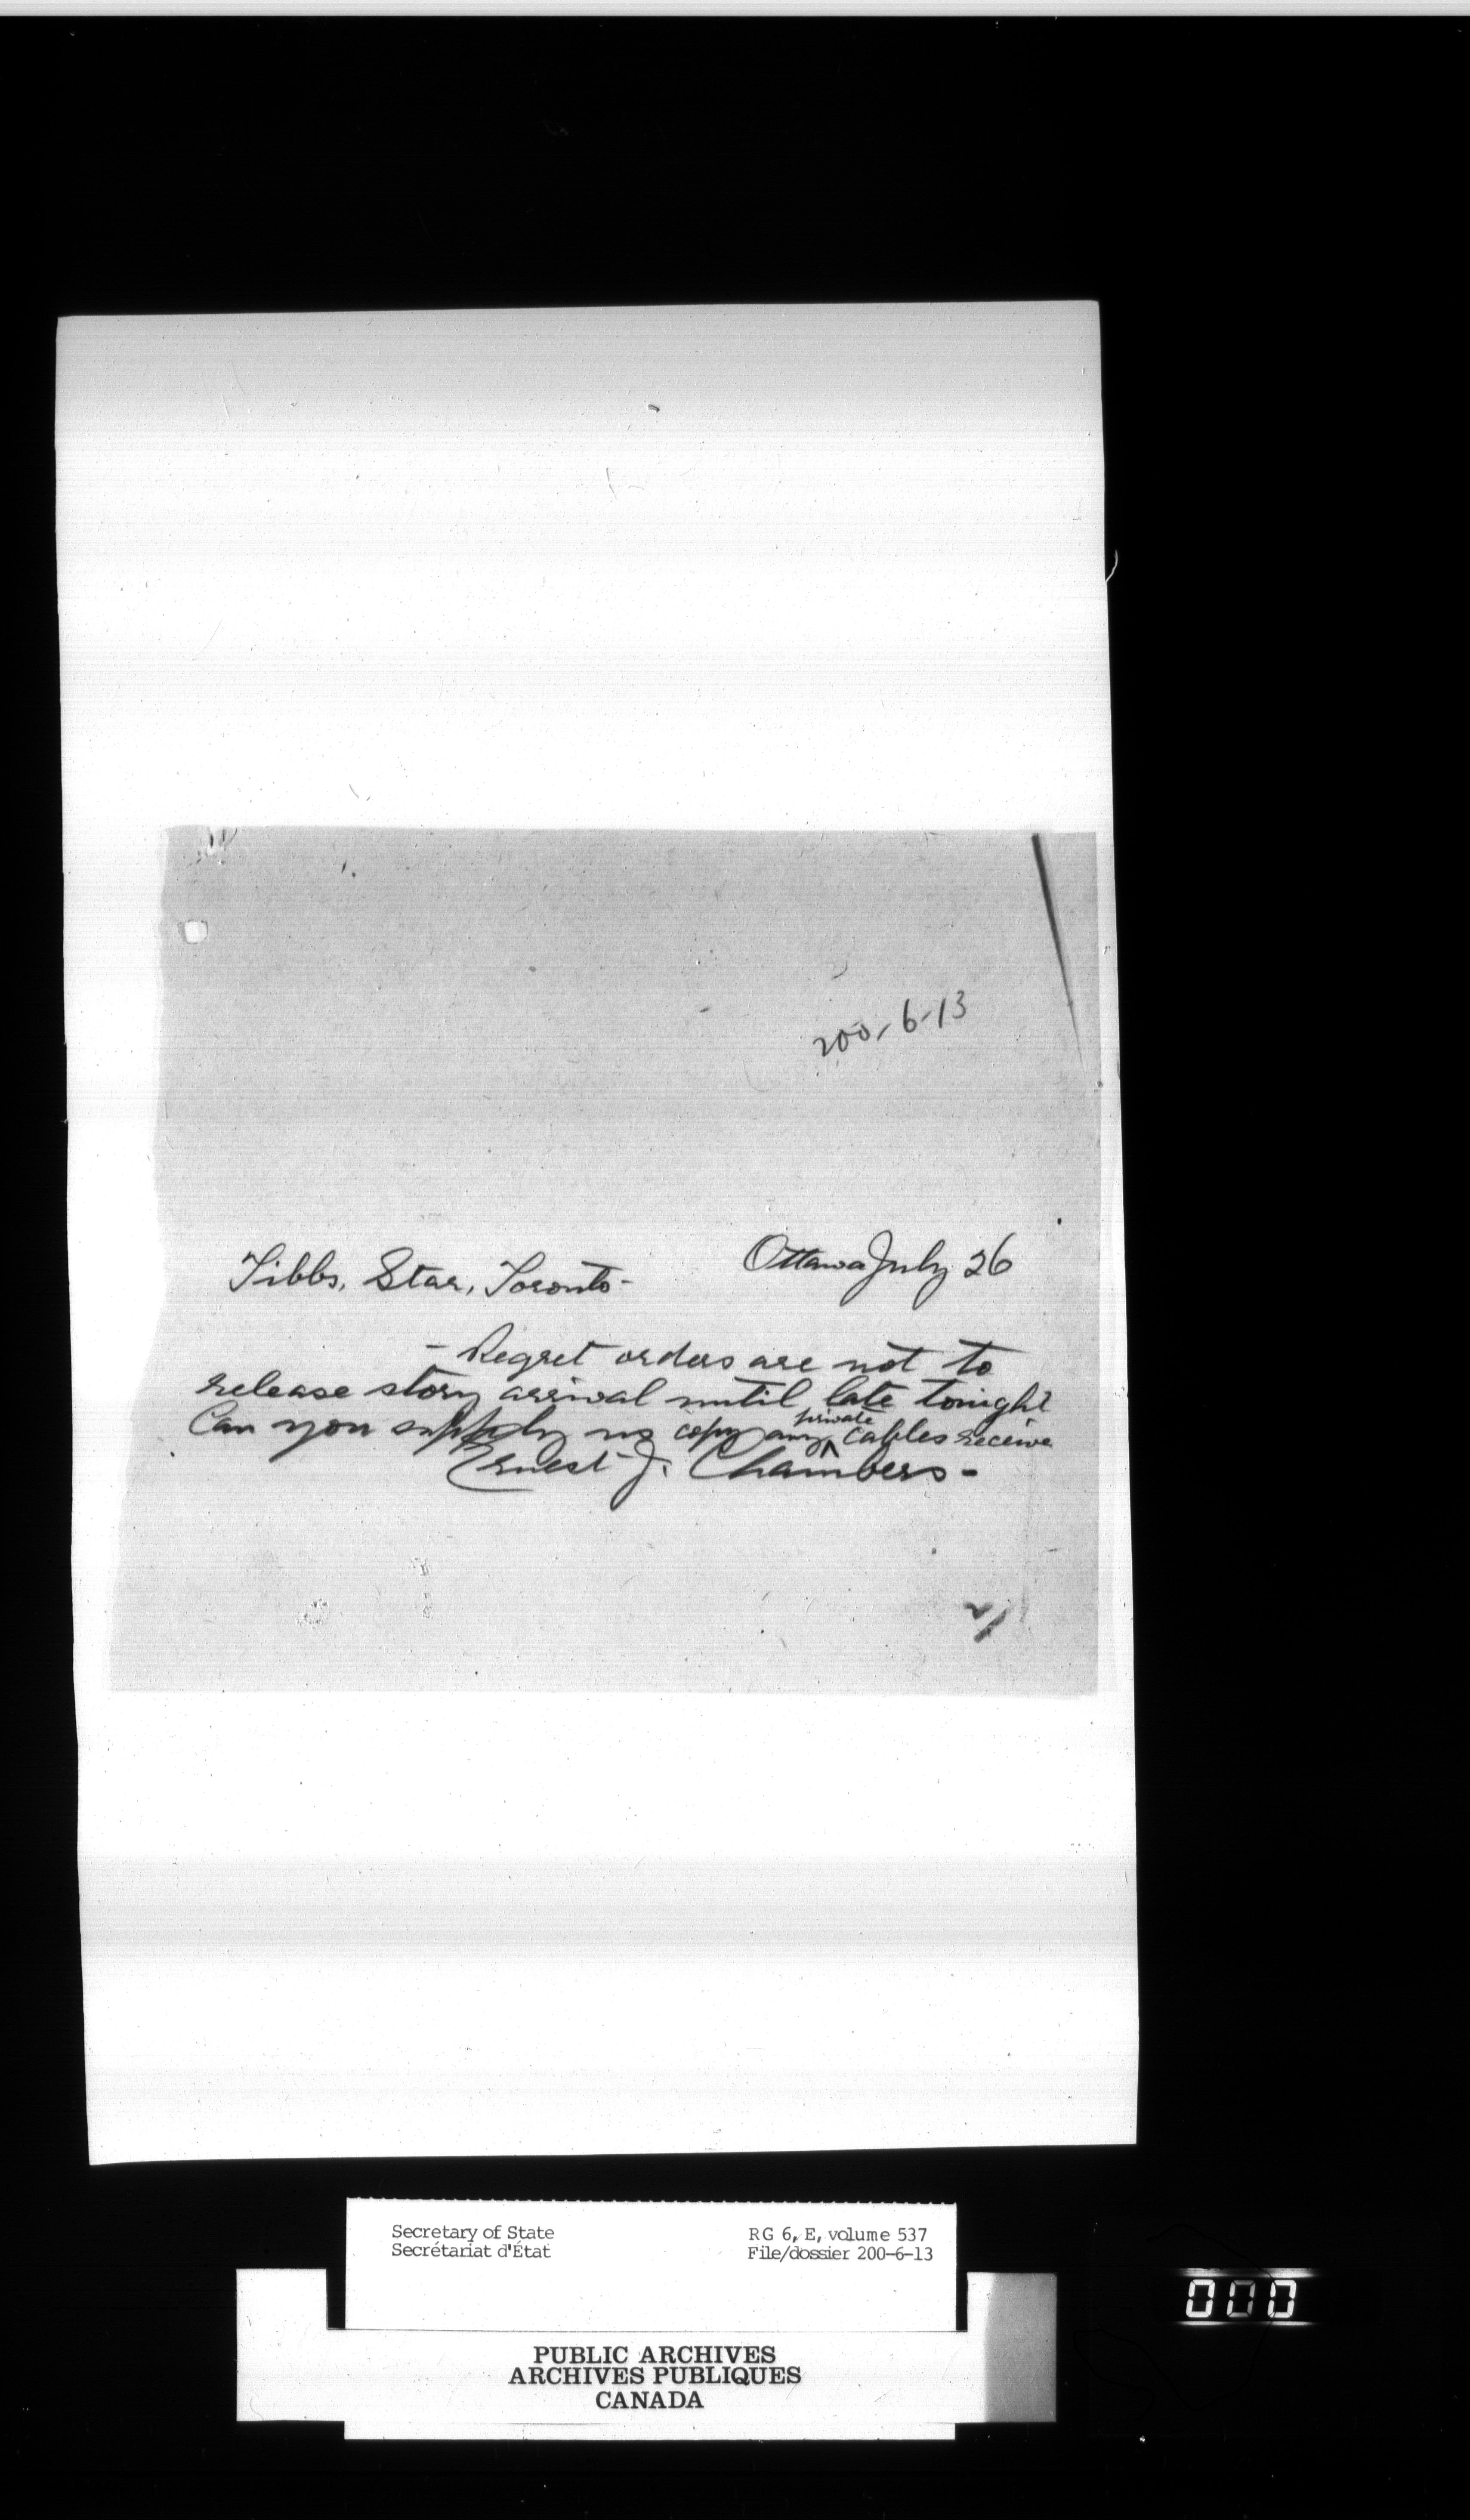 200-6-13
Ottawa July 26
Tibbs, Star, Toronto-
- Regret orders are not to
release story arrival until late tonight
Can you supply us copy any private cables receive
Ernest J. Chambers -
Secretary of State
Secrétariat d'État
RG 6, E, volume 537
File/dossier 200-6-13
PUBLIC ARCHIVES
ARCHIVES PUBLIQUES
CANADA
000